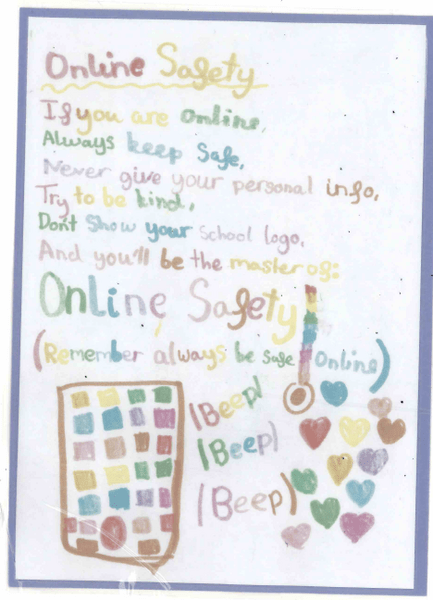 Online Safety
If you are online,
Always keep safe,
Never give your personal info,
Try to be kind,
Don't show your school logo,
And you'll be the master of:
Online Safety
(Remember always be safe online)
(Beep)
(Beep)
(Beep)